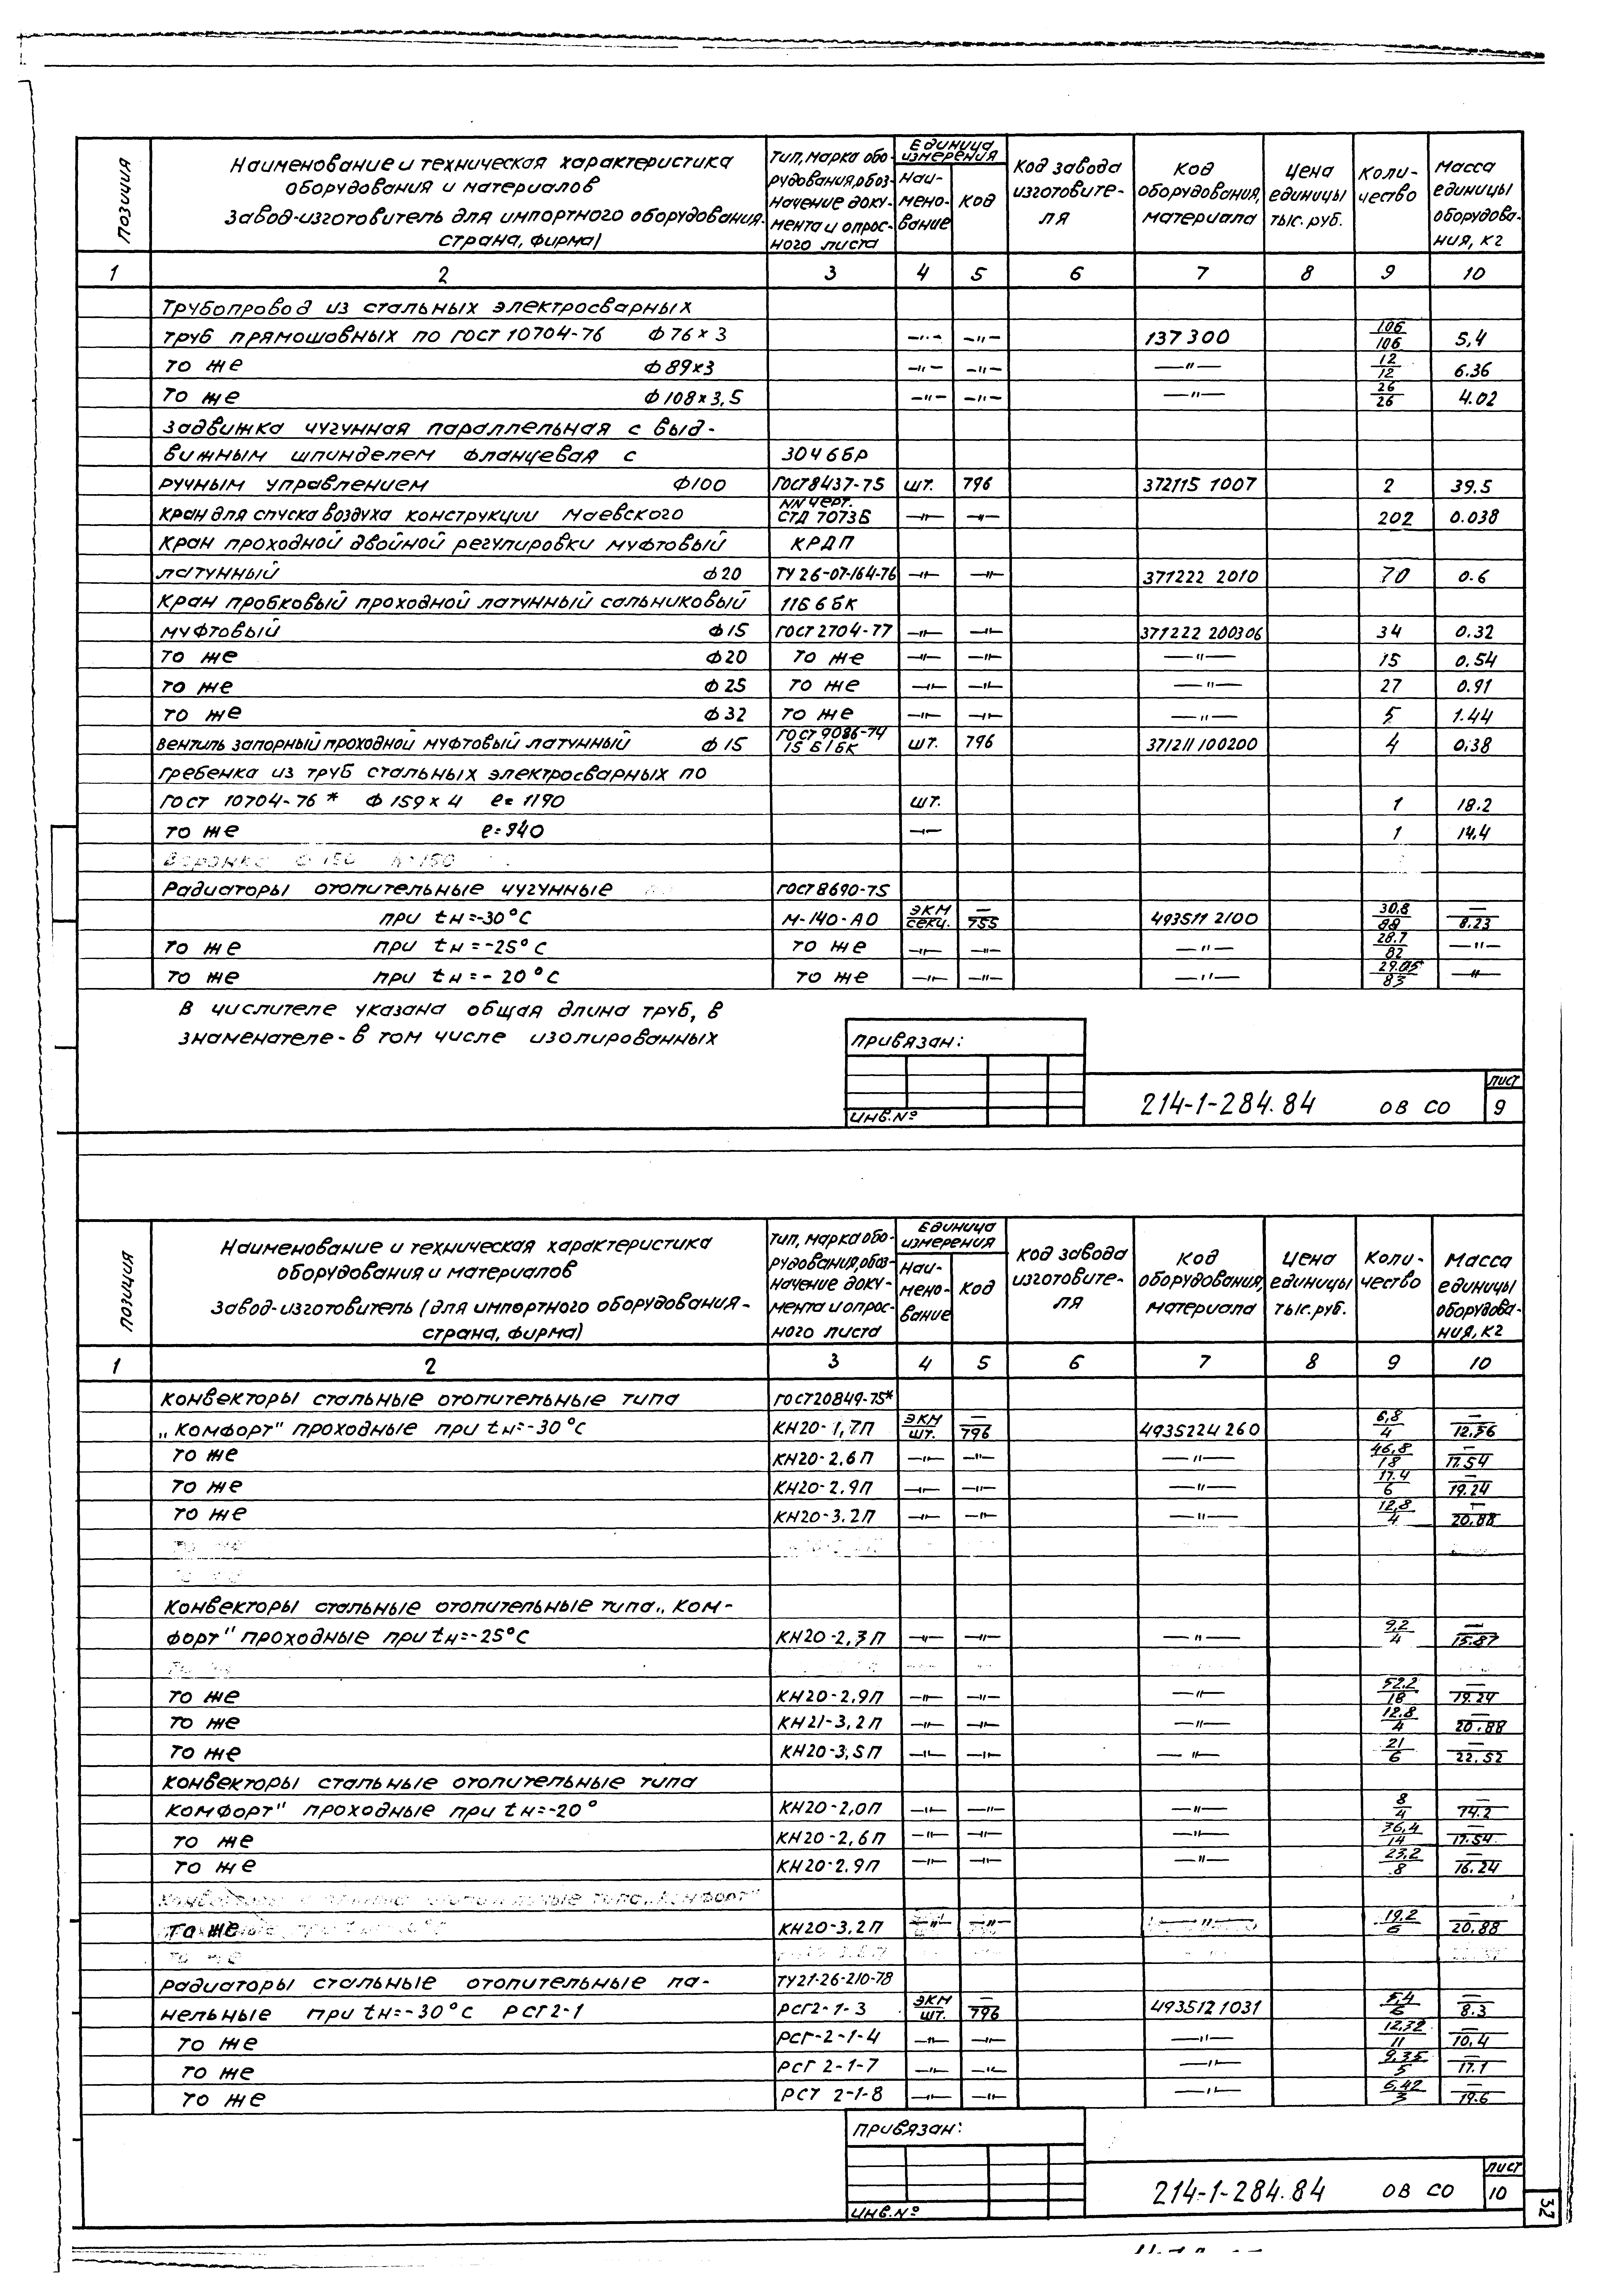 Позиция | Наименование и техническая характеристика оборудования и материалов завод-изготовитель для импортного оборудования страна, фирма) | Тип, марка оборудования, обозначение документа и опросного листа | Единица измерения: Наименование | Код | Код завода изготовителя | Код оборудования, материала | Цена единицы тыс. руб. | Количество | Масса единицы оборудования, кг
1 | 2 | 3 | 4 | 5 | 6 | 7 | 8 | 9 | 10
Трубопровод из стальных электросварных
труб прямошовных по ГОСТ 10704-76 ф 76×3 | –"– | –"– | 137300 | 106/106 | 5,4
то же ф 89×3 | –"– | –"– | –"– | 12/12 | 6.36
то же ф 108×3,5 | –"– | –"– | –"– | 26/26 | 4.02
задвижка чугунная параллельная с выд-
вижным шпинделем фланцевая с | 30ч6бр
ручным управлением ф100 | ГОСТ 8437-75 | шт. | 796 | 372115 1007 | 2 | 39.5
кран для спуска воздуха конструкции Маевского | NN черт. СТД 7073Б | –"– | –"– | 202 | 0.038
кран проходной двойной регулировки муфтовый | КРДП
латунный ф20 | ТУ 26-07-164-76 | –"– | –"– | 371222 2010 | 70 | 0.6
кран пробковый проходной латунный сальниковый | 11Б6бК
муфтовый ф15 | ГОСТ 2704-77 | –"– | –"– | 371222 200306 | 34 | 0.32
то же ф20 | то же | –"– | –"– | –"– | 15 | 0.54
то же ф25 | то же | –"– | –"– | –"– | 27 | 0.91
то же ф32 | то же | –"– | –"– | –"– | 5 | 1.44
вентиль запорный проходной муфтовый латунный ф15 | ГОСТ 9086-74 15Б1бК | шт. | 796 | 371211100200 | 4 | 0.38
гребенка из труб стальных электросварных по
ГОСТ 10704-76* ф 159×4 е=1190 | шт. | 1 | 18.2
то же е=940 | –"– | 1 | 14.4
Радиаторы отопительные чугунные | ГОСТ 8690-75
при tн=-30°С | М-140-АО | экм/секц. | –/755 | 493511 2100 | 30.8/88 | –/8.23
то же при tн=-25°С | то же | –"– | –"– | –"– | 28.7/82 | –"–
то же при tн=-20°С | то же | –"– | –"– | –"– | 29.05/83 | –"–
В числителе указана общая длина труб, в
знаменателе - в том числе изолированных
привязан:
инв.№
214-1-284.84 ОВ СО
лист
9
Позиция | Наименование и техническая характеристика оборудования и материалов завод-изготовитель (для импортного оборудования - страна, фирма) | Тип, марка оборудования, обозначение документа и опросного листа | Единица измерения: Наименование | Код | Код завода изготовителя | Код оборудования, материала | Цена единицы тыс. руб. | Количество | Масса единицы оборудования, кг
1 | 2 | 3 | 4 | 5 | 6 | 7 | 8 | 9 | 10
конвекторы стальные отопительные типа | ГОСТ 20849-75*
„Комфорт" проходные при tн=-30°С | КН20-1,7П | экм/шт. | –/796 | 4935224260 | 6,8/4 | –/12,56
то же | КН20-2,6П | –"– | –"– | –"– | 46,8/18 | –/17.54
то же | КН20-2.9П | –"– | –"– | –"– | 17.4/6 | –/19.24
то же | КН20-3.2П | –"– | –"– | –"– | 12,8/4 | –/20.88
то же
конвекторы стальные отопительные типа „Ком-
форт" проходные при tн=-25°С | КН20-2,3П | –"– | –"– | –"– | 9,2/4 | –/15.87
то же | КН20-2,9П | –"– | –"– | –"– | 52.2/18 | –/19.24
то же | КН21-3,2П | –"– | –"– | –"– | 12.8/4 | –/20.88
то же | КН20-3,5П | –"– | –"– | –"– | 21/6 | –/22.52
конвекторы стальные отопительные типа
Комфорт" проходные при tн=-20° | КН20-2,0П | –"– | –"– | –"– | 8/4 | –/14.2
то же | КН20-2,6П | –"– | –"– | –"– | 36,4/14 | –/17.54
то же | КН20-2.9П | –"– | –"– | –"– | 23.2/8 | –/16.24
то же | КН20-3,2П | –"– | –"– | –"– | 19.2/6 | –/20.88
радиаторы стальные отопительные па-
нельные при tн=-30°С РСГ2-1 | ТУ21-26-210-78 РСГ2-1-3 | экм/шт. | –/796 | 4935121031 | 5,4/6 | –/8.3
то же | РСГ-2-1-4 | –"– | –"– | –"– | 12,32/11 | –/10,4
то же | РСГ 2-1-7 | –"– | –"– | –"– | 9.35/5 | –/17.1
то же | РСГ 2-1-8 | –"– | –"– | –"– | 6,42/3 | –/19.6
привязан:
инв.№
214-1-284.84 ОВ СО
лист
10
32